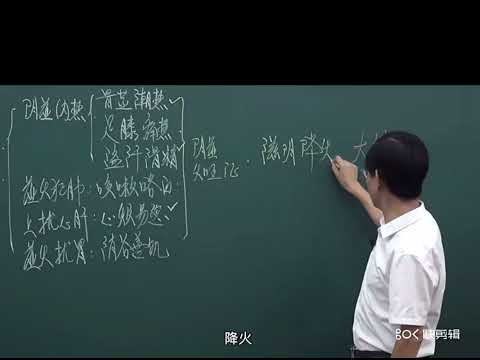 阴虚内热
骨蒸潮热
足膝疼热
盗汗遗精
虚火犯肺:咳嗽咯血
上扰心肝:心烦易怒
虚火扰胃:消谷善饥
阴虚
火旺证
滋阴降火 大
降火
快剪辑